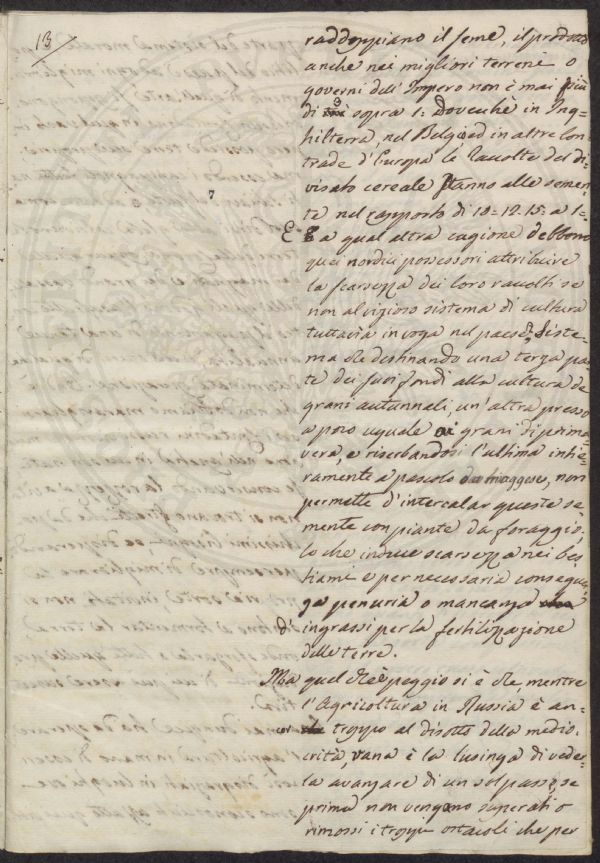 13
raddoppiano il seme, il prodotto
anche nei migliori terreni o
governi dell'Impero non è mai più
di 3 sopra 1: Dovechè in Ing=
hilterra, nel Belgio ed in altre Con
trade d'Europa le raccolte del di
visato cereale stanno alle semen
te nel rapporto di 10=12.15= a 1=
E a qual altra cagione debbono
quei nordici possessori attribuire
la scarsezza dei loro raccolti se
non al vizioso sistema di cultura
tuttavia in voga nel paese, Siste=
ma che destinando una terza par
te dei suoi fondi alla cultura de
grani autunnali, un'altra presso
a poco uguale ai grani di prima
vera, e riserbandosi l'ultima intie=
ramente a pascolo da maggese, non
permette d'intercalar queste se
mente con piante da foraggio,
lo che induce scarsezza nei bes
tiami e per necessaria conseguen
za penuria o mancanza
d'ingrassi per la fertilizzazione
delle terre.
Ma quel che è peggio si è che, mentre
l'Agricoltura in Russia è an=
cor troppo al disotto della medio=
crità, vana è la lusinga di veder
la avanzare di un sol passo, se
prima non vengono superati o
rimossi i troppi ostacoli che per